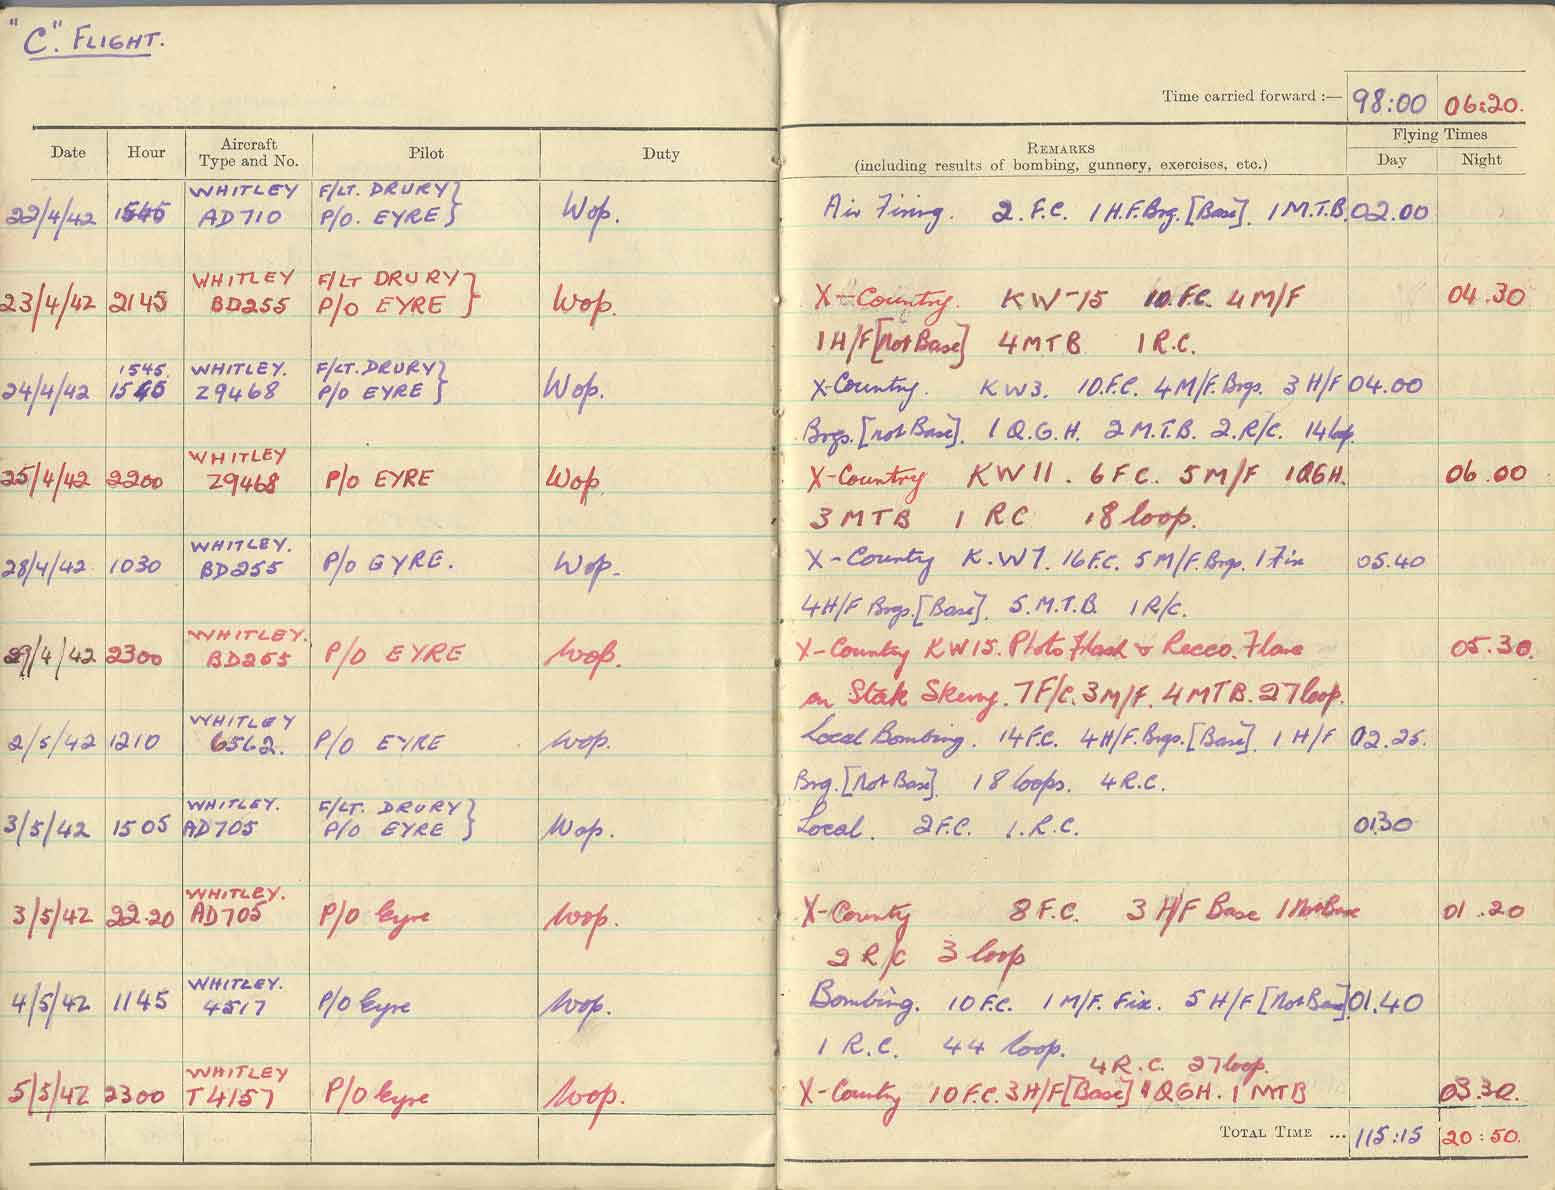 "C". FLIGHT.
Time carried forward :— 98:00 06:20.
Date Hour Aircraft Type and No. Pilot Duty REMARKS (including results of bombing, gunnery, exercises, etc.) Flying Times Day Night
WHITLEY F/LT. DRURY }
22/4/42 1545 AD710 P/O. EYRE } Wop. Air Firing. 2. F.C. 1 H.F. Brg. [Base]. 1 M.T.B. 02.00
WHITLEY F/LT DRURY }
23/4/42 2145 BD255 P/O EYRE } Wop. X-Country. KW-15 10.F.C. 4 M/F 04.30
1 H/F [not Base] 4 MTB 1 R.C.
1545. WHITLEY. F/LT. DRURY }
24/4/42 Z9468 P/O EYRE } Wop. X-Country. KW3. 10.F.C. 4 M/F. Brgs. 3 H/F 04.00
Brgs. [not Base]. 1 Q.G.H. 2 M.T.B. 2.R/C. 14 loop.
WHITLEY
25/4/42 2200 Z9468 P/O EYRE Wop. X-Country KW11. 6 F.C. 5 M/F 1QGH. 06.00
3 MTB 1 RC 18 loop.
WHITLEY.
28/4/42 1030 BD255 P/O EYRE. Wop. X-Country K.W7. 16F.C. 5 M/F. Brgs. 1 Fix 05.40
4 H/F Brgs. [Base]. 5.M.T.B. 1 R/C.
WHITLEY.
29/4/42 2300 BD255 P/O EYRE Wop. X-Country KW15. Photo Flash & Recco. Flare 05.30.
on 7 F/C. 3 M/F. 4 MTB. 27 loop.
WHITLEY
2/5/42 1210 6562. P/O EYRE Wop. Local Bombing. 14 F.C. 4 H/F. Brgs. [Base]. 1 H/F 02.25.
Brg. [not Base]. 18 loops. 4 R.C.
WHITLEY. F/LT. DRURY }
3/5/42 1505 AD705 P/O EYRE } Wop. Local. 2 F.C. 1. R.C. 01.30
WHITLEY.
3/5/42 22.20 AD705 P/O Eyre Wop. X-Country 8 F.C. 3 H/F Base 1 Not Base 01.20
2 R/C 3 loop
WHITLEY.
4/5/42 1145 4517 P/O Eyre Wop. Bombing. 10 F.C. 1 M/F. Fix. 5 H/F [Not Base] 01.40
1 R.C. 44 loop.
4 R.C. 27 loop.
WHITLEY
5/5/42 2300 T4157 P/O Eyre Wop. X-Country 10 F.C. 3 H/F [Base] 1QGH. 1 MTB 03.30.
TOTAL TIME ... 115:15 20:50.